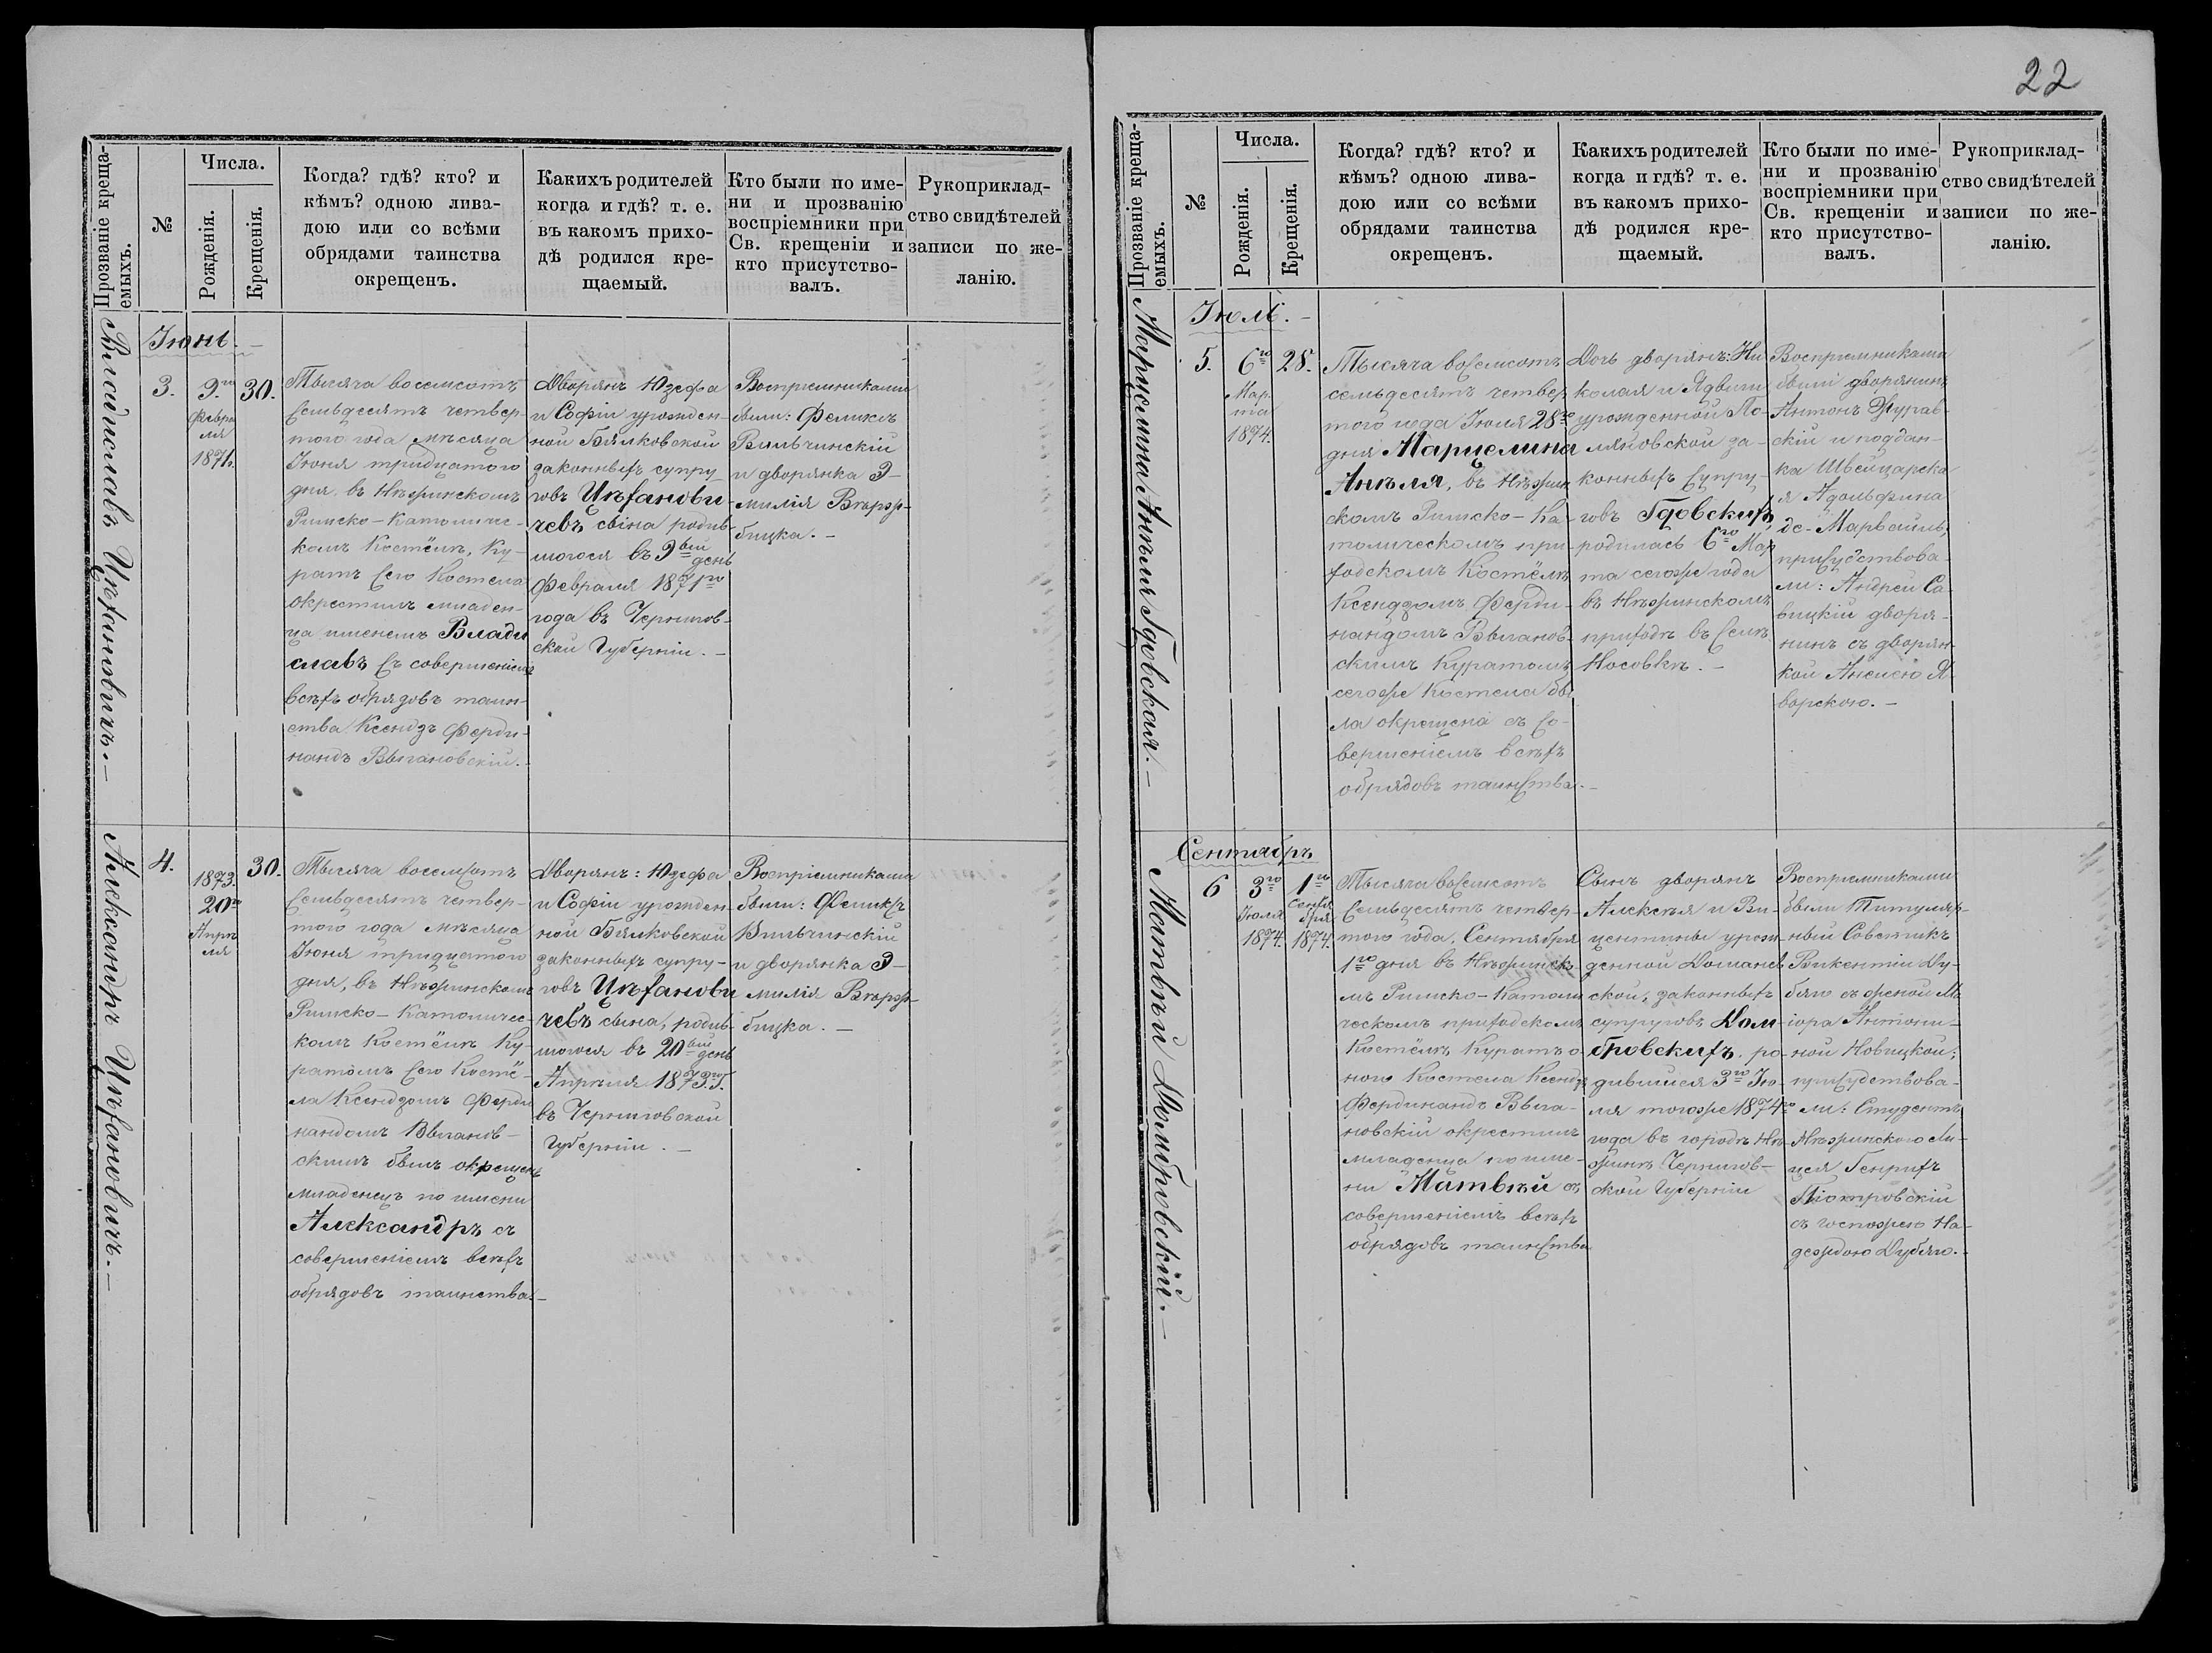 22
Числа.
Прозваніе креща-
емыхъ.
№
Рожденія.
Крещенія.
Когда? гдѣ? кто? и
кѣмъ? одною лива-
дою или со всѣми
обрядами таинства
окрещенъ.
Какихъ родителей
когда и гдѣ? т. е.
въ какомъ прихо-
дѣ родился кре-
щаемый.
Кто были по име-
ни и прозванію
воспріемники при
Св. крещеніи и
кто присутство-
валъ.
Рукоприклад-
ство свидѣтелей
записи по же-
ланію.
Іюнь. –
Владиславъ Цѣхановичъ. –
3.
9.го
Февра
ля
1871.
30.
Тысяча восемсотъ
семьдесятъ четвер-
того года мѣсяца
Іюня тридцатого
дня, въ Нѣжинскомъ
Римско-Католичес-
комъ Костёлѣ, Ку-
ратъ сего Костела
окрестилъ младен-
ца именемъ Влади
славъ съ совершеніемъ
всѣхъ обрядовъ таин-
ства Ксендзъ Ферди-
нандъ Выгановскій.
Дворянъ Юзефа
и Софіи урожден-
ной Бялковской
законныхъ супру
говъ Цѣханови-
чевъ сына родив-
шогося въ 9ый день
Февраля 1871го
года въ Чернигов-
ской Губерніи. –
Воспріемниками
были: Феликсъ
Вильчинскій
и дворянка Э-
милія Вержр-
бицка. –
Александръ Цѣхановичъ. –
4.
1873.
20го
Апрѣ
ля
30.
Тысяча восемсотъ
семьдесятъ четвер-
того года мѣсяца
Іюня тридцатого
дня, въ Нѣжинскомъ
Римско-Католичес-
комъ Костёлѣ Ку-
ратомъ сего Костё-
ла Ксендзомъ Ферди
нандомъ Выганов-
скимъ былъ окрещенъ
младенецъ по имени
Александръ съ
совершеніемъ всѣхъ
обрядовъ таинства. –
Дворянъ: Юзефа
и Софіи урожден-
ной Бялковской
законныхъ супру-
говъ Цѣханови
чевъ сына, родив-
шогося въ 20ый день
Апрѣля 1873 г.
въ Черниговской
Губерніи. –
Воспріемниками
были: Феликсъ
Вильчинскій
и дворянка Э-
милія Вержр-
бицка. –
Числа.
Прозваніе креща-
емыхъ.
№
Рожденія.
Крещенія.
Когда? гдѣ? кто? и
кѣмъ? одною лива-
дою или со всѣми
обрядами таинства
окрещенъ.
Какихъ родителей
когда и гдѣ? т. е.
въ какомъ прихо-
дѣ родился кре-
щаемый.
Кто были по име-
ни и прозванію
воспріемники при
Св. крещеніи и
кто присутство-
валъ.
Рукоприклад-
ство свидѣтелей
записи по же-
ланію.
Іюль. –
Марцелина Анѣля Гдовская. –
5.
6го
Мар-
та
1874.
28.
Тысяча восемсотъ
семьдесятъ четвер
того года Іюля 28го
дня Марцелина
Анѣля, въ Нѣжин
скомъ Римско-Ка-
толическомъ при-
ходскомъ Костёлѣ
Ксендзомъ Ферди-
нандомъ Выганов-
скимъ Куратомъ
сегоже Костела бы
ла окрещена съ со-
вершеніемъ всѣхъ
обрядовъ таинства. –
Дочь дворянъ: Ни
колая и Ядвиги
урожденной По-
ляковской за-
конныхъ супру-
говъ Гдовскихъ,
родилась 6го Мар
та сегоже года
въ Нѣжинскомъ
приходѣ въ селѣ
Носовкѣ. –
Воспріемниками
были дворянинъ
Антонъ Журав-
скій и поддан-
ка Швейцарска
я Адольфина
де-Марвейль;
присудствова-
ли: Андрей Са-
вицкій дворя-
нинъ съ дворян-
кой Анелею Я-
ворскою. –
Сентябръ
Матвѣй Домбровскій. –
6
3го
Іюля
1874.
1го
Сентя
бря
1874.
Тысяча восемсотъ
семьдесятъ четвер-
того года, Сентября
1го дня въ Нѣжинск-
мъ Римско-Католи
ческомъ приходскомъ
Костёлѣ, Куратъ о-
ного Костела Ксендзъ
Фердинандъ Выга-
новскій окрестилъ
младенца по име-
ни Матвѣй съ
совершеніемъ всѣхъ
обрядовъ таинства
Сынъ дворянъ
Алексѣя и Ви-
центины урож-
денной Доманев
ской, законныхъ
супруговъ Дом-
бровскихъ, ро-
дившійся 3го Ію-
ля тогоже 1874го
года въ городѣ Нѣ-
жинѣ Чернигов-
ской Губерніи
Воспріемниками
были Титуляр-
ный Совѣтникъ
Викентій Ду-
бяго съ женой Ма
іора Антони-
ной Новицкой;
присудствова-
ли: Студентъ
Нѣжинского Ли-
цея Генрихъ
Піотровскій
съ госпожею На-
деждою Дубяго. –